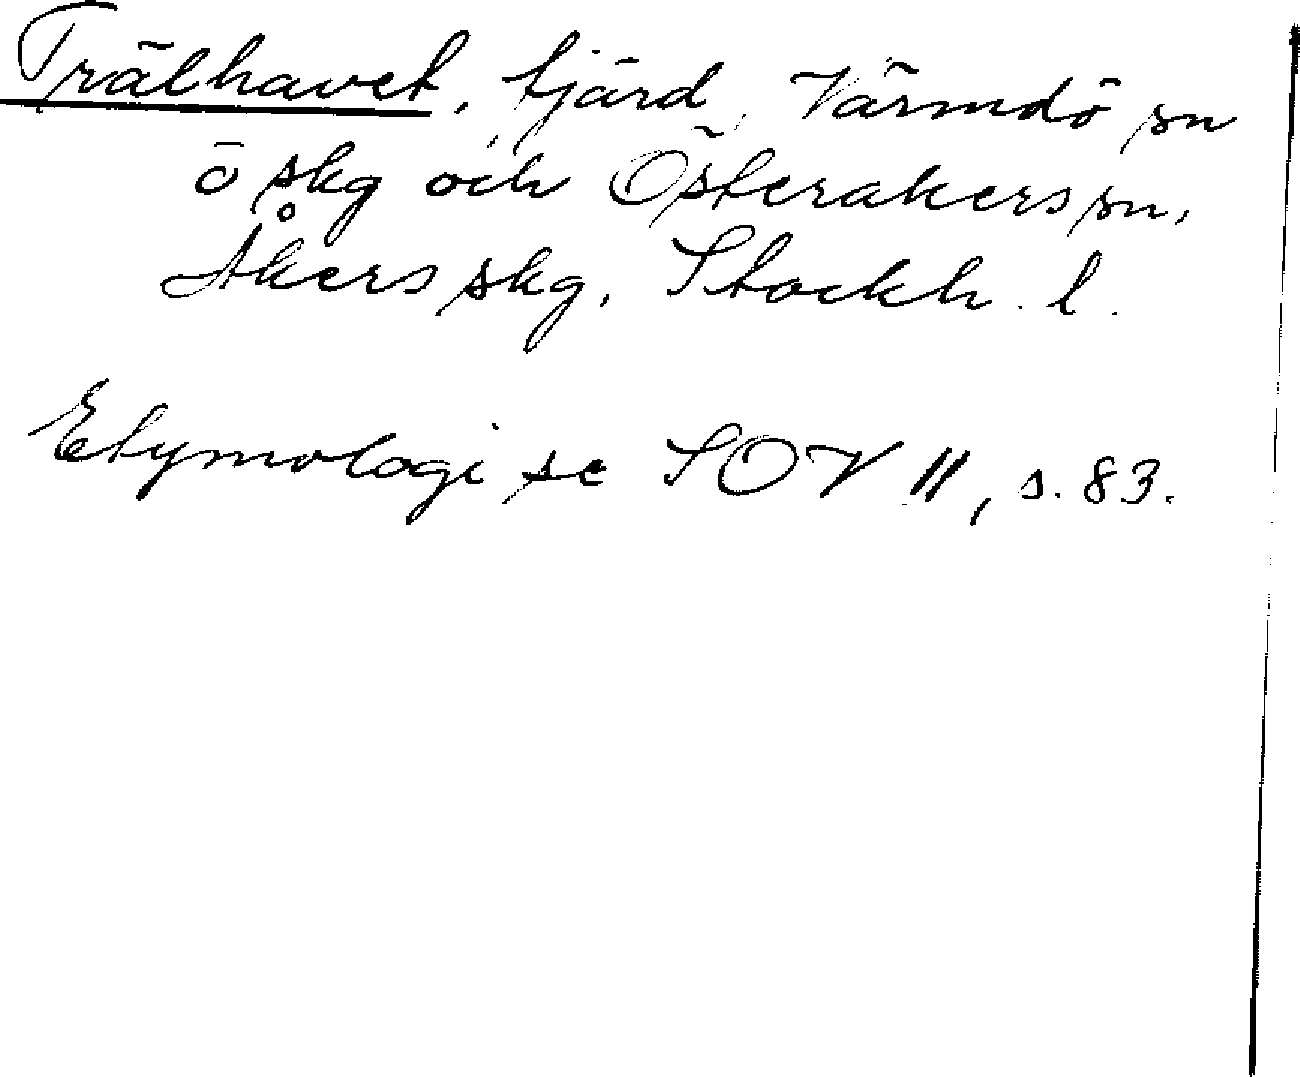 Trälhavet, fjärd, Värmdö sn
ö skg och Österåkers sn,
Åkers skg, Stockh. l.
Etymologi se SOV II, s. 83.